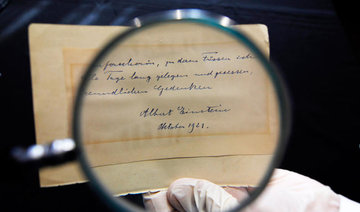 Forscherin, zu deren Füssen ich
Tage lang gelegen und gesessen,
Gedenken
Albert Einstein
Oktober 1921.